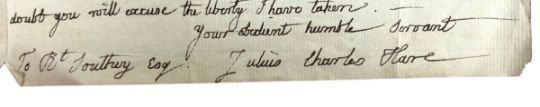 doubt you will excuse the liberty I have taken. —
Your obedient humble Servant
To Rt Southey Esq. Julius Charles Hare